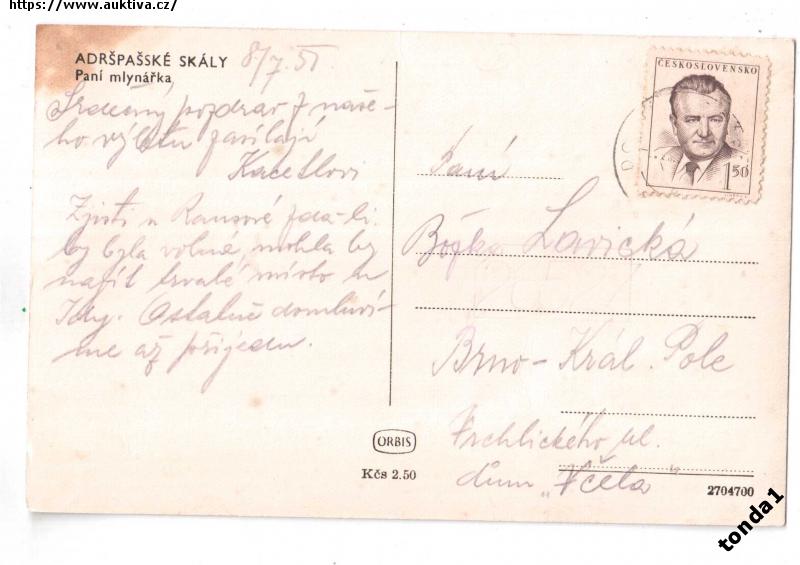 https://www.auktiva.cz/
ADRŠPAŠSKÉ SKÁLY
Paní mlynářka
8/7.51
Srdečný pozdrav z naše-
ho výletu zasílají
Kacetlovi
Zjisti u Rausové zda-li
by byla volná, mohla by
najít trvalé místo u
Idy. Ostatně domluví-
me až přijedu.
ČESKOSLOVENSKO
1 50
Paní
Božka Lavická
Brno - Král. Pole
Vrchlického ul.
dům „Včela"
ORBIS
Kčs 2.50
2704700
tonda1